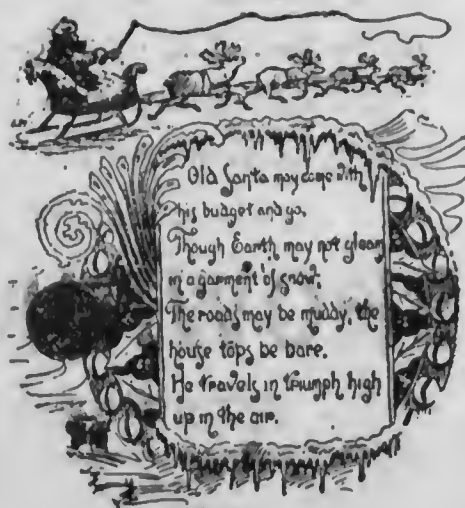 Old Santa may come with
his budget and go,
Though Earth may not gleam
in a garment of snow;
The roads may be muddy, the
house tops be bare.
He travels in triumph high
up in the air.